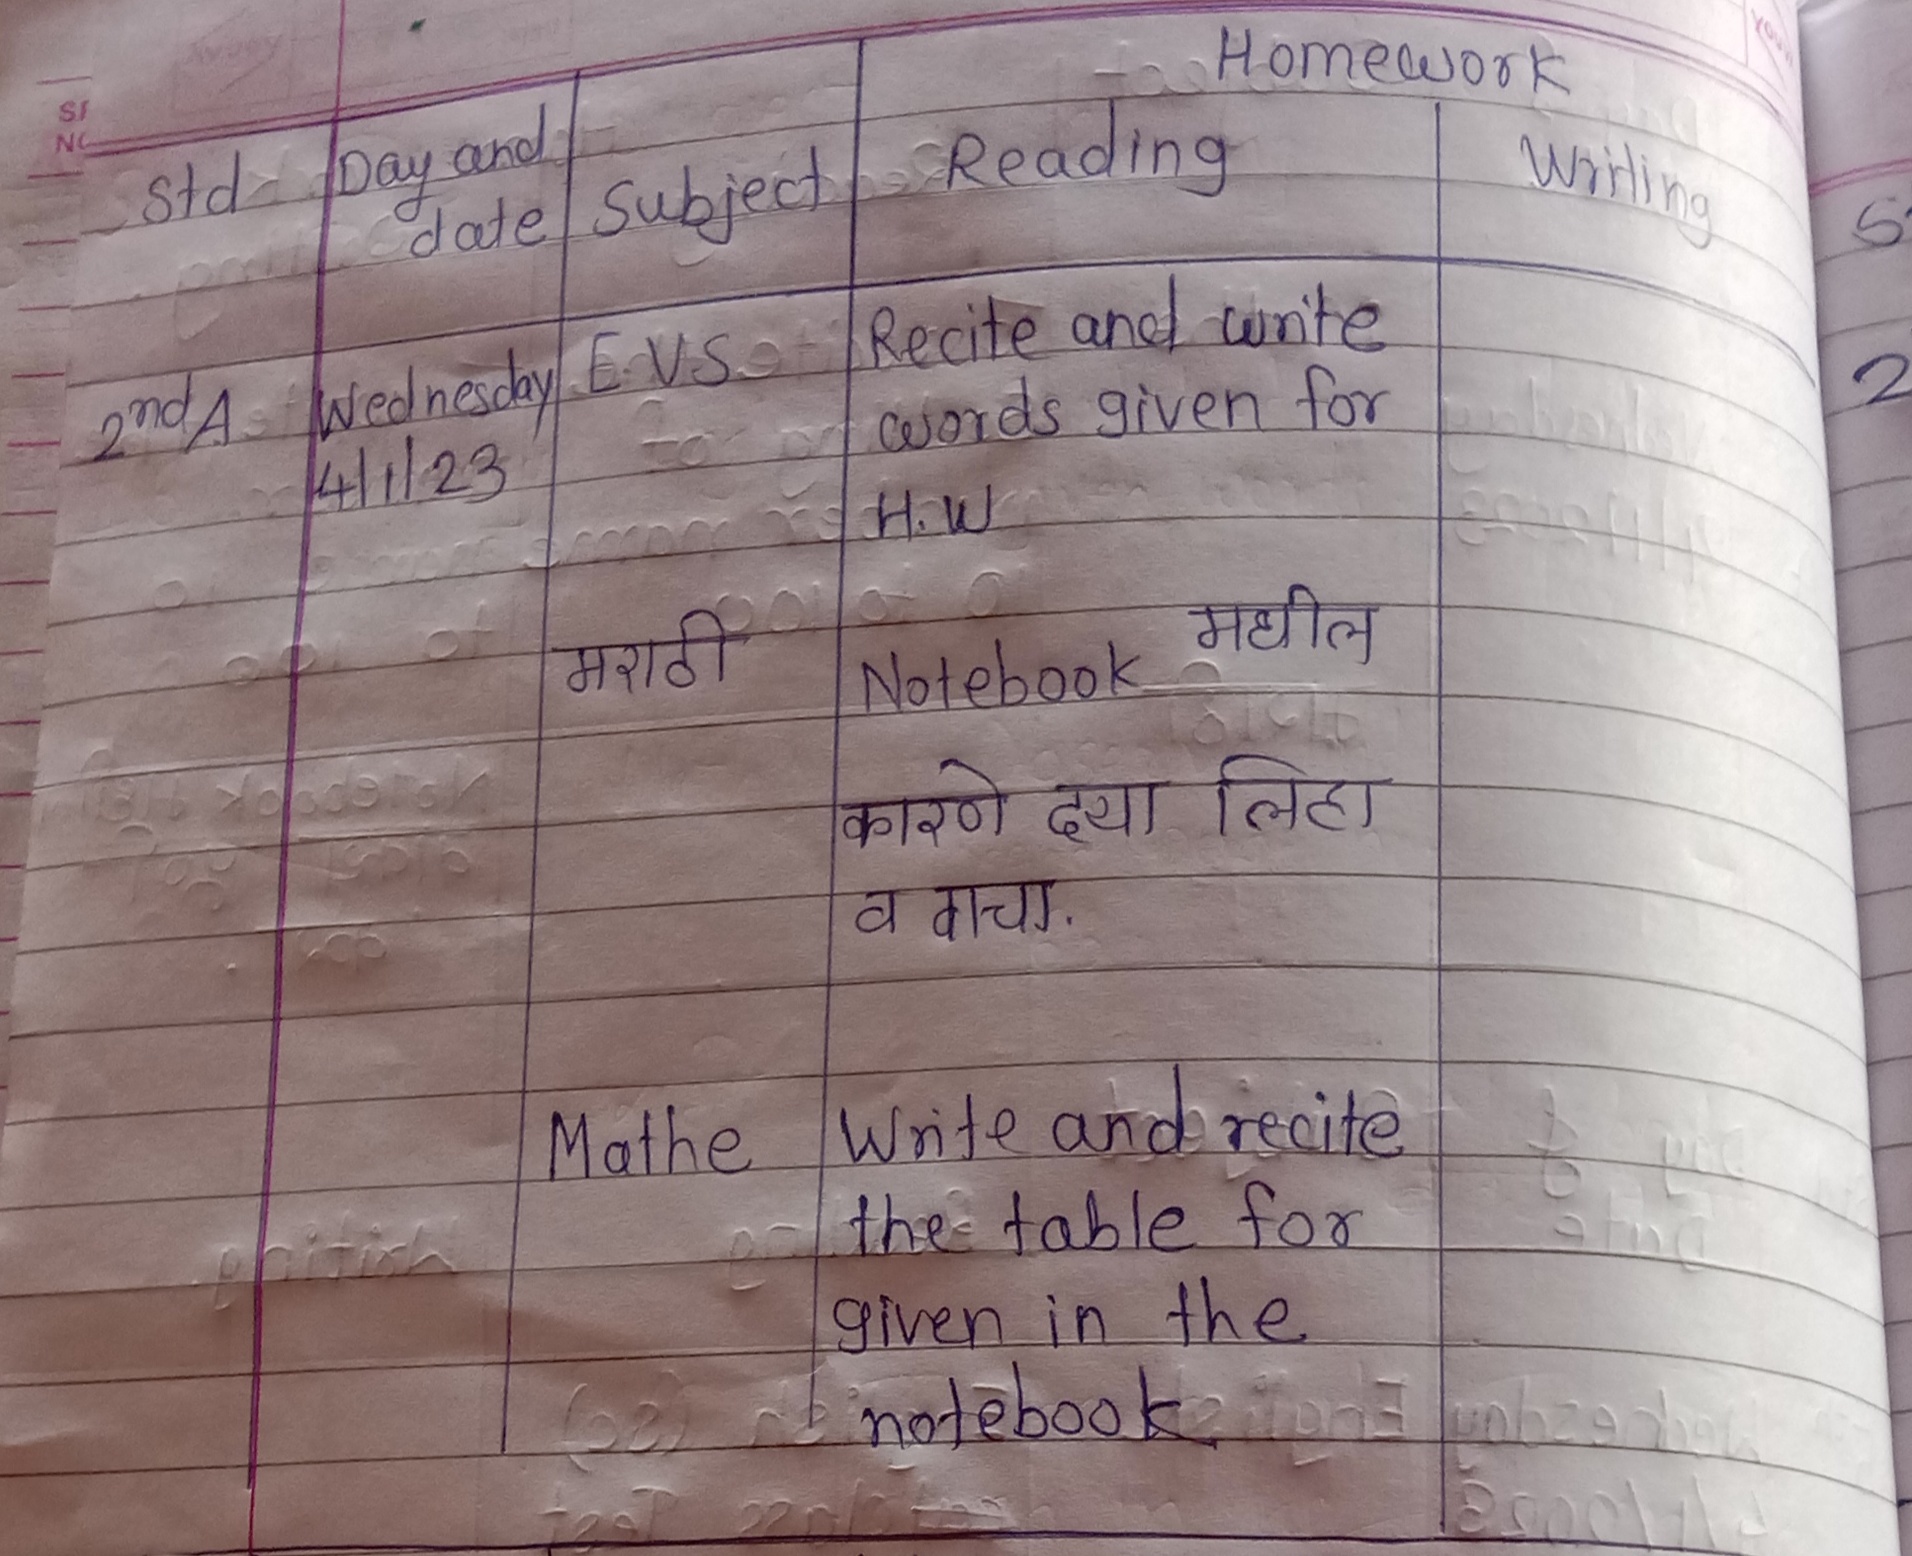 Homework
Std Day and date Subject Reading Writing
2nd A Wednesday E.V.S Recite and write
4/1/23 words given for
H.W
मराठी Notebook मधील
कारणे दया लिहा
व वाचा.
Mathe Write and recite
the table for
given in the
notebook